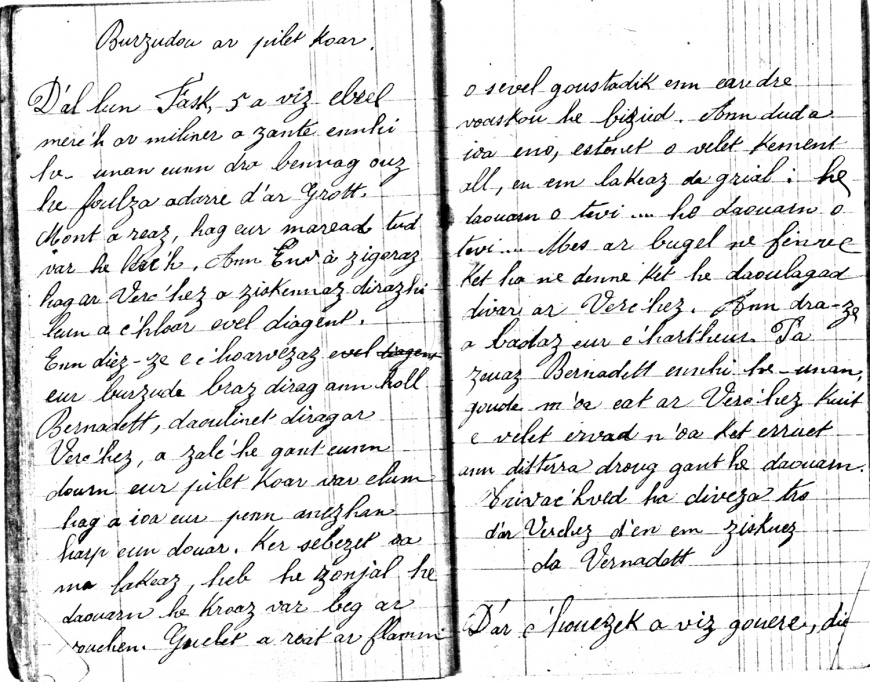 Burzudou ar pilet koar.
D'al lun Fask, 5 a viz ebrel
merc'h ar miliner a zante ennhi
he-unan eunn dro bennag ouz
he foulza adarre d'ar Grott.
Mont a reaz, hag eur maread tud
var he lerc'h. Ann Env a zigoraz
hag ar Verc'hez a ziskennaz dirazhi
leun a c'hloar evel diagent.
Enn diez-ze e c'hoarvezaz evel diagent
eur burzude braz dirag ann holl
Bernadett, daoulinet dirag ar
Verc'hez, a zalc'he gant eunn
dourn eur pilet koar var elum
hag a ioa eur penn anezhan
harp eun douar. Ker sebezet oa
ma lakeaz, heb he zonjal he
daouarn he kroaz var beg ar
rouchen. Guelet a reat ar flamm
o sevel goustadik enn ear dre
voaskou he biziad. Ann dud a
ioa eno, estonet o velet kement
all, en em lakeaz da grial : he
daouarn o tevi .... he daouarn o
tevi .... Mes ar bugel ne finvec
ket ha ne denne ket he daoulagad
divar ar Verc'hez. Ann dra-ze
a badaz eur c'hartheur. Pa
zeuaz Bernadett ennhi he-unan,
goude m'oa eat ar Verc'hez kuit
e velet ervad n'oa ket erruet
ann disterra droug gant he daouarn.
Trivac'hved ha diveza tro
d'ar Verchez d'en em ziskuez
da Vernadett
D'ar c'houezek a viz gouere, die